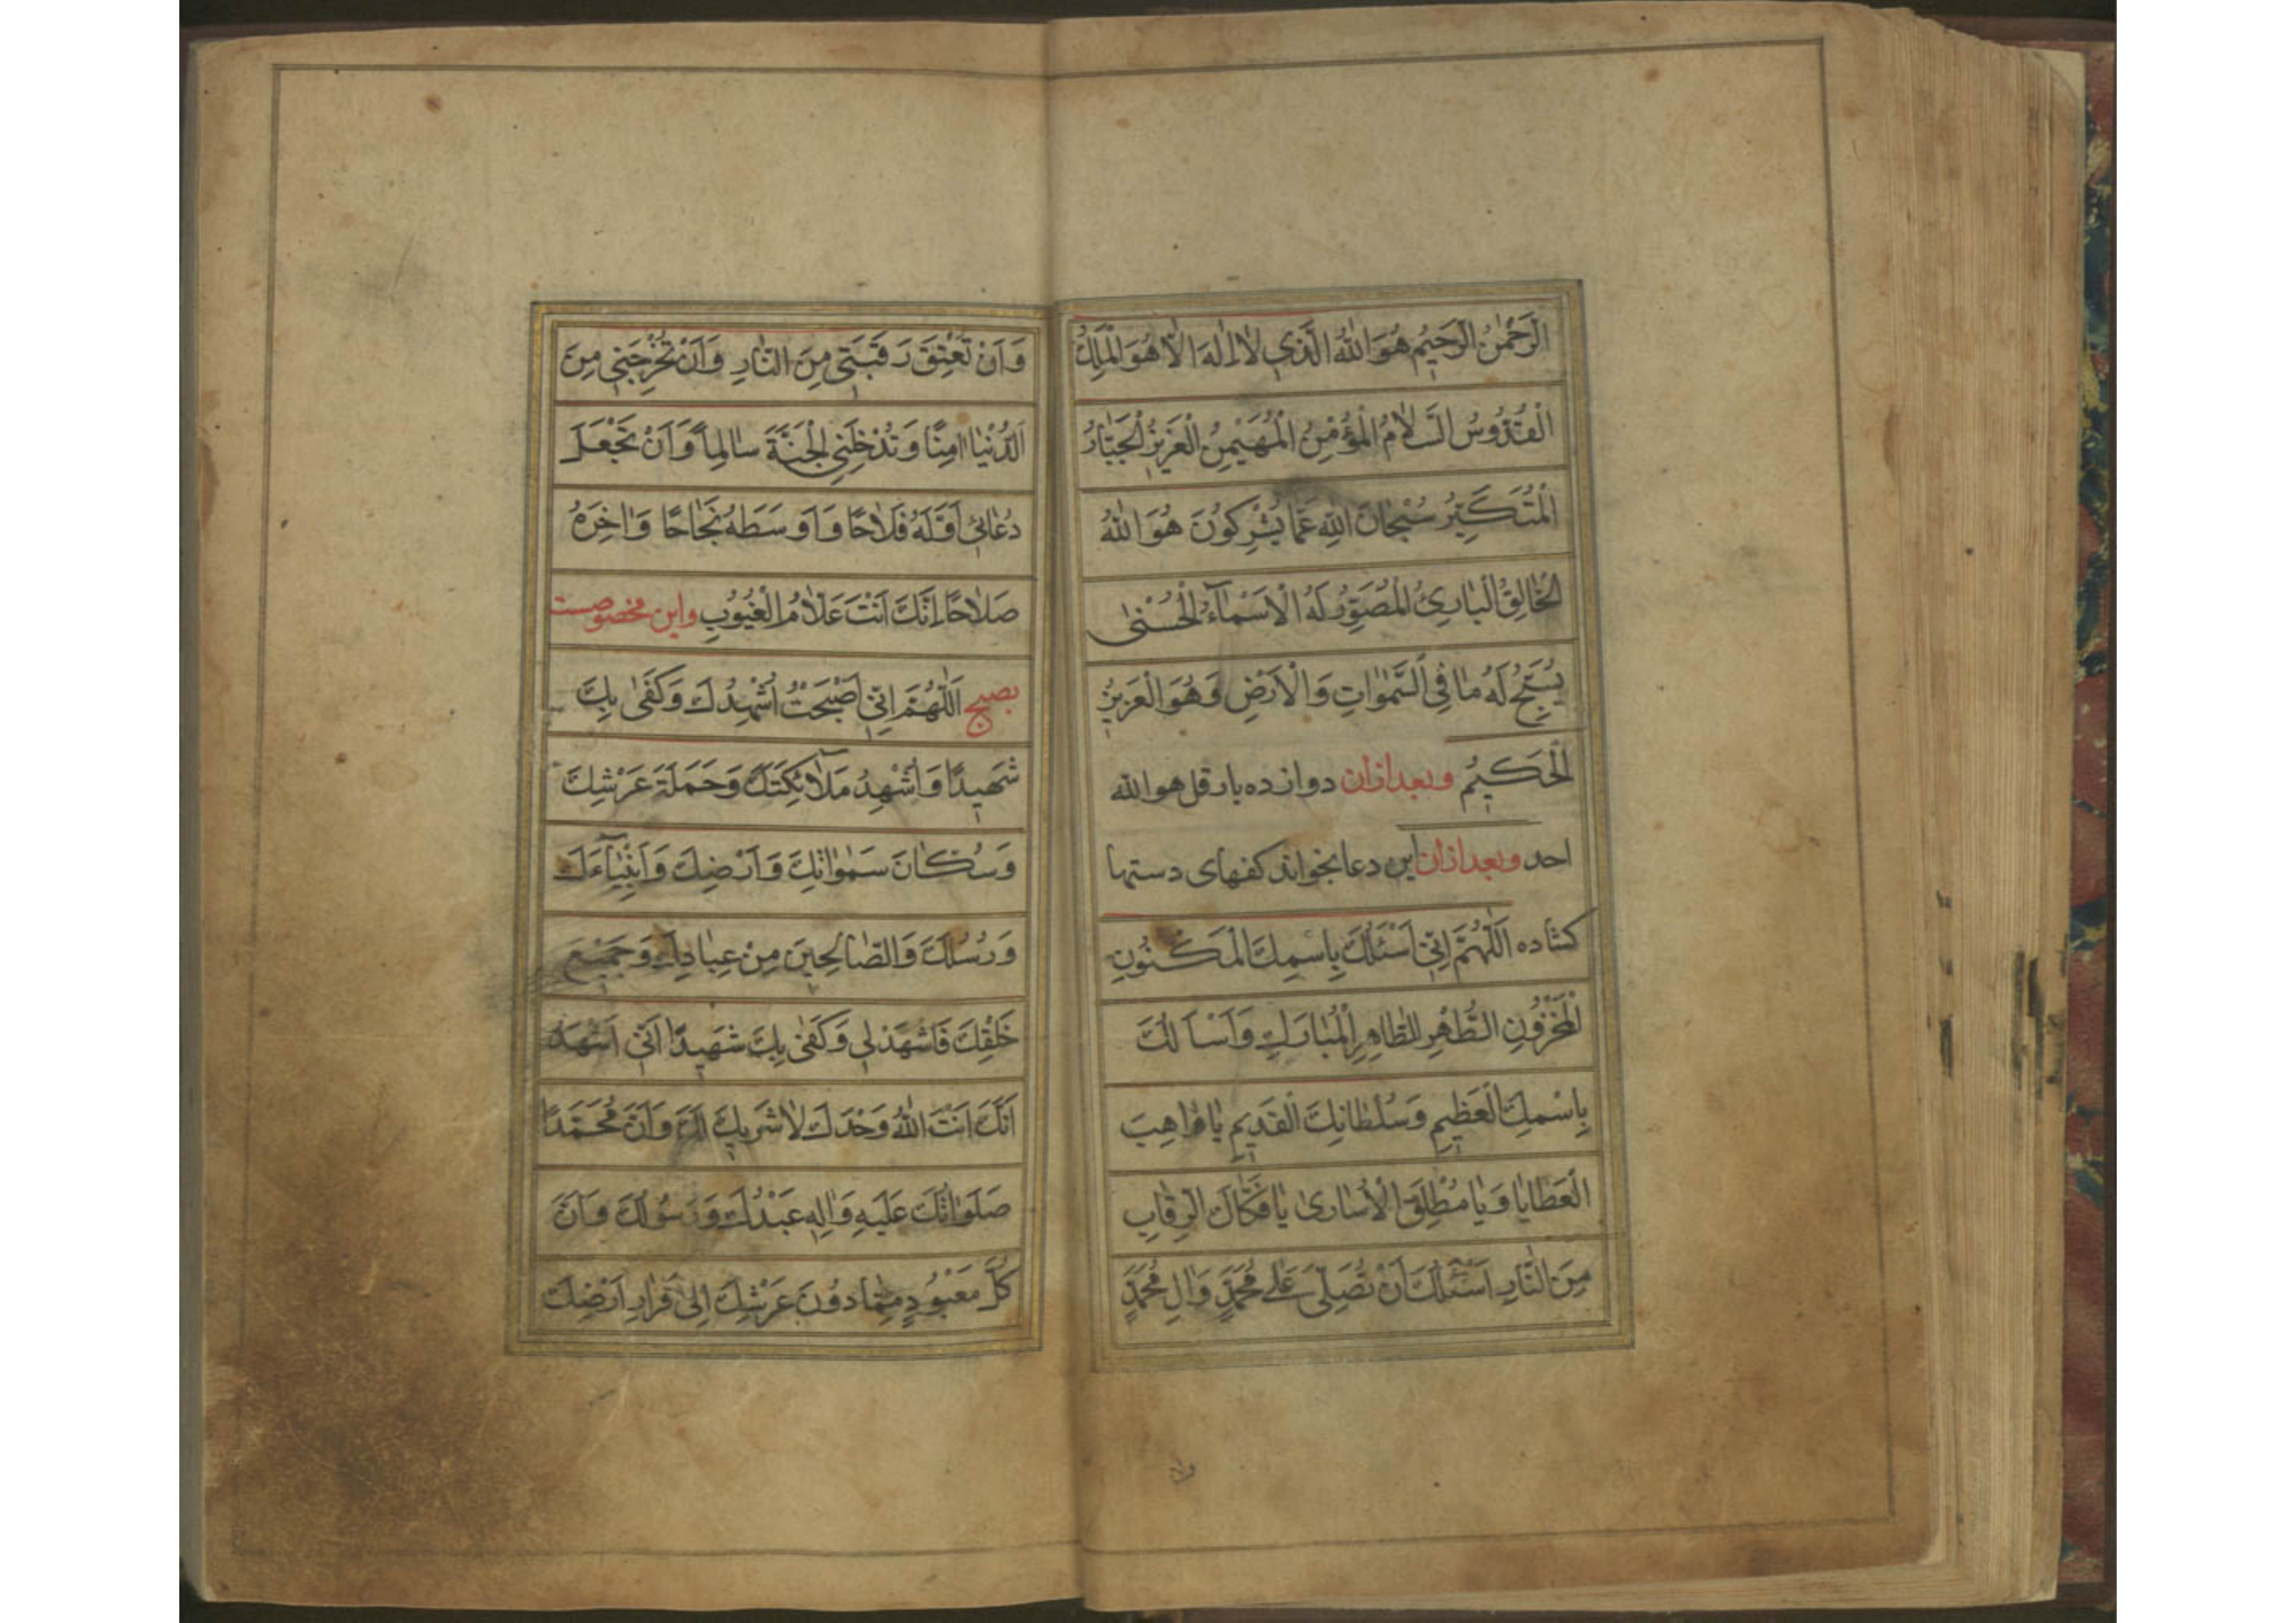 الرَّحْمٰنُ الرَّحِيمُ هُوَ اللّٰهُ الَّذِي لٰا اِلٰهَ اِلّٰا هُوَ الْمَلِكُ
الْقُدُّوسُ السَّلٰامُ الْمُؤْمِنُ الْمُهَيْمِنُ الْعَزِيزُ الْجَبّٰارُ
الْمُتَكَبِّرُ سُبْحٰانَ اللّٰهِ عَمّٰا يُشْرِكُونَ هُوَ اللّٰهُ
الْخٰالِقُ الْبٰارِئُ الْمُصَوِّرُ لَهُ الْاَسْمٰآءُ الْحُسْنٰى
يُسَبِّحُ لَهُ مٰا فِي السَّمٰوٰاتِ وَالْاَرْضِ وَهُوَ الْعَزِيزُ
الْحَكِيمُ وبعد ازان دوازده بار قل هو الله
احد وبعد ازان اين دعا بخواند كفهاى دستها
كشاده اَللّٰهُمَّ اِنِّي اَسْئَلُكَ بِاسْمِكَ الْمَكْنُونِ
الْمَخْزُونِ الطُّهْرِ الطّٰاهِرِ الْمُبٰارَكِ وَاَسْاَلُكَ
بِاسْمِكَ الْعَظِيمِ وَسُلْطٰانِكَ الْقَدِيمِ يٰا وٰاهِبَ
الْعَطٰايٰا وَيٰا مُطْلِقَ الْاُسٰارىٰ يٰا فَكّٰاكَ الرِّقٰابِ
مِنَ النّٰارِ اَسْئَلُكَ اَنْ تُصَلِّيَ عَلىٰ مُحَمَّدٍ وَاٰلِ مُحَمَّدٍ
وان
وَاَنْ تُعْتِقَ رَقَبَتِي مِنَ النّٰارِ وَاَنْ تُخْرِجَنِي مِنَ
الدُّنْيٰا اٰمِنًا وَتُدْخِلَنِي الْجَنَّةَ سٰالِماً وَاَنْ تَجْعَلَ
دُعٰائِي اَوَّلَهُ فَلٰاحًا وَاَوْسَطَهُ نَجٰاحًا وَاٰخِرَهُ
صَلٰاحًا اِنَّكَ اَنْتَ عَلّٰامُ الْغُيُوبِ واين مخصوصست
بصبح اَللّٰهُمَّ اِنِّي اَصْبَحْتُ اُشْهِدُكَ وَكَفىٰ بِكَ
شَهِيدًا وَاُشْهِدُ مَلٰآئِكَتَكَ وَحَمَلَةَ عَرْشِكَ
وَسُكّٰانَ سَمٰوٰاتِكَ وَاَرْضِكَ وَاَنْبِيٰآءَكَ
وَرُسُلَكَ وَالصّٰالِحِينَ مِنْ عِبٰادِكَ وَجَمِيعَ
خَلْقِكَ فَاشْهَدْ لِي وَكَفىٰ بِكَ شَهِيدًا اَنِّي اَشْهَدُ
اَنَّكَ اَنْتَ اللّٰهُ وَحْدَكَ لٰا شَرِيكَ لَكَ وَاَنَّ مُحَمَّدًا
صَلَوٰاتُكَ عَلَيْهِ وَاٰلِهِ عَبْدُكَ وَرَسُولُكَ وَاَنَّ
كُلَّ مَعْبُودٍ مِمّٰا دُونَ عَرْشِكَ اِلىٰ قَرٰارِ اَرْضِكَ